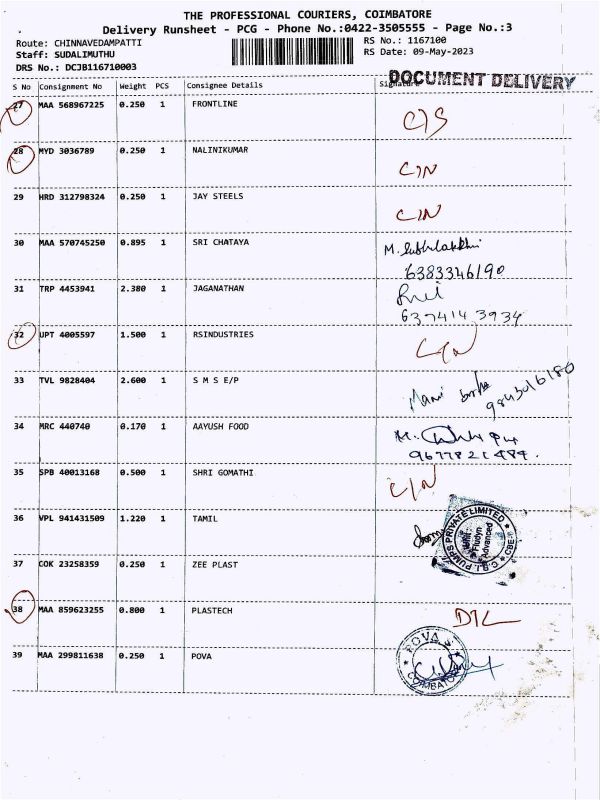 THE PROFESSIONAL COURIERS, COIMBATORE
Delivery Runsheet - PCG - Phone No.:0422-3505555 - Page No.:3
Route: CHINNAVEDAMPATTI RS No.: 1167100
Staff: SUDALIMUTHU RS Date: 09-May-2023
DRS No.: DCJB116710003
DOCUMENT DELIVERY
S No Consignment No Weight PCS Consignee Details Signature
27 MAA 568967225 0.250 1 FRONTLINE C/S
28 MYD 3036789 0.250 1 NALINIKUMAR C/N
29 HRD 312798324 0.250 1 JAY STEELS C/N
30 MAA 570745250 0.895 1 SRI CHATAYA M.
6383346190
31 TRP 4453941 2.380 1 JAGANATHAN
6374143934
32 UPT 4005597 1.500 1 RSINDUSTRIES C/N
33 TVL 9828404 2.600 1 S M S E/P Mani
9843016180
34 MRC 440740 0.170 1 AAYUSH FOOD M.
9677821484.
35 SPB 40013168 0.500 1 SHRI GOMATHI C/N
36 VPL 941431509 1.220 1 TAMIL
C.R.I. PUMPS PRIVATE LIMITED
Unit :
Fludyn
Advanced
CBE-
37 COK 23258359 0.250 1 ZEE PLAST
38 MAA 859623255 0.800 1 PLASTECH D/L
39 MAA 299811638 0.250 1 POVA
POVA
COIMBATORE